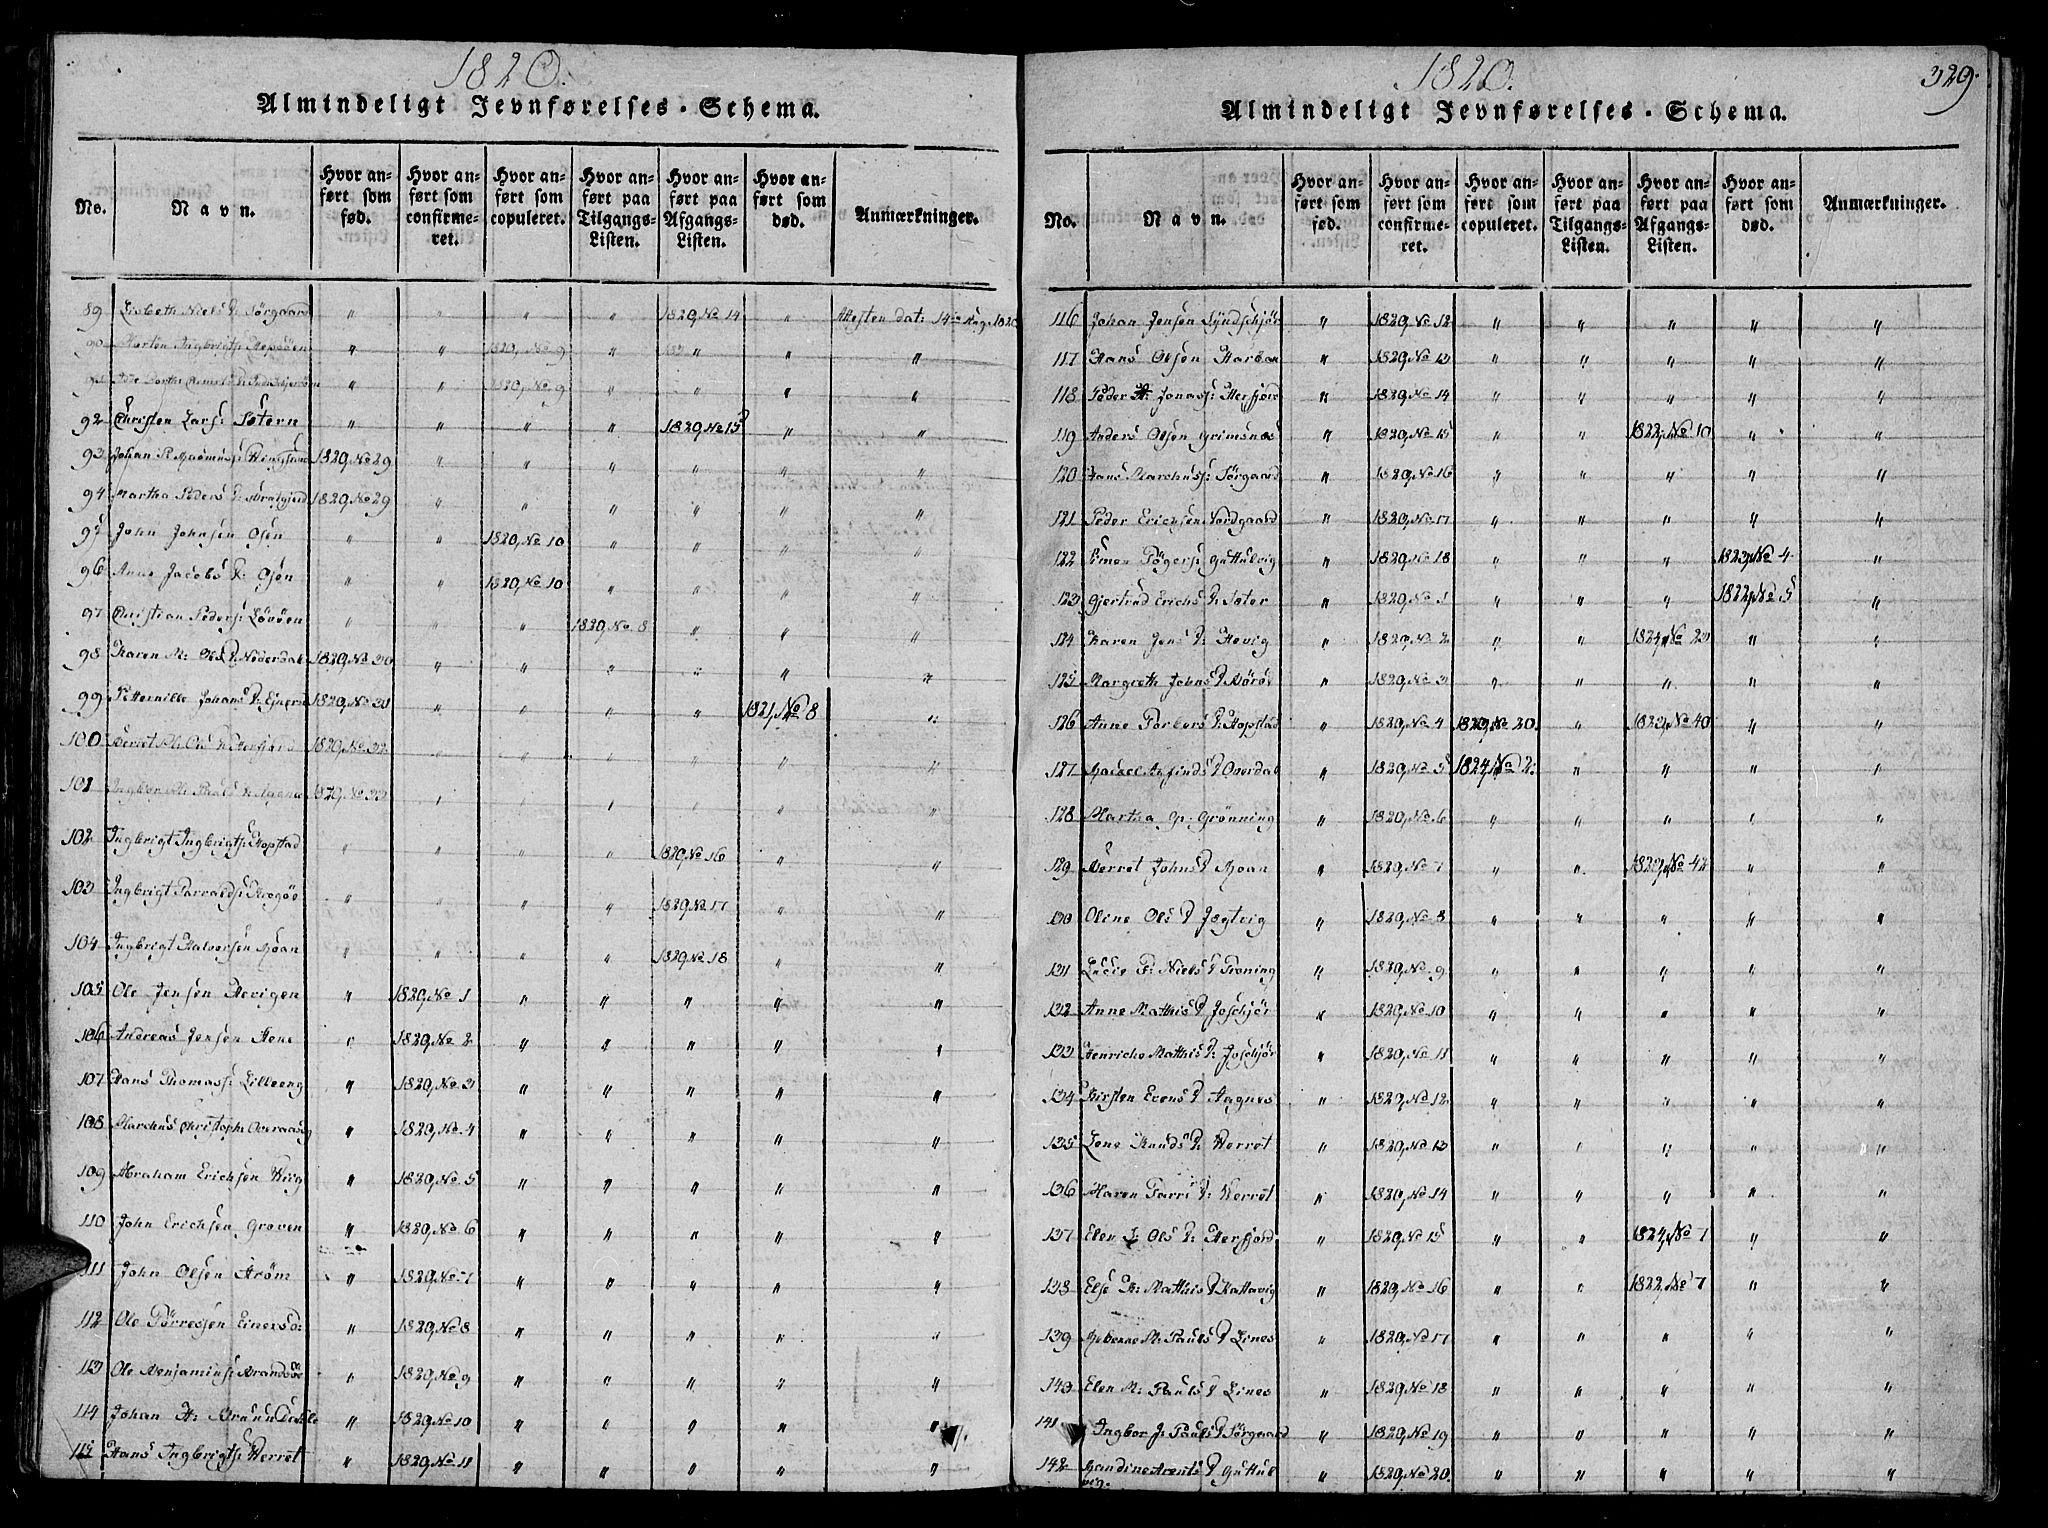 1820.
Almindeligt Jevnførelses-Schema.
No. | Navn. | Hvor anført som fød. | Hvor anført som confirmeret. | Hvor anført som copuleret. | Hvor anført paa Tilgangs-Listen. | Hvor anført paa Afgangs-Listen. | Hvor anført som død. | Anmærkninger.
89 Lisbeth Niels D: Sørgaard " " " " 1820, No 14 "
90 " " 1820, No 9 " " " "
91 " " 1820, No 9 " " " "
92 Christen Lars: Sætern " " " " 1820, No 15 " "
93 Johan P. Rasmus: 1820, No 29 " " " " " "
94 Martha Peders D: 1820, No 29 " " " " " "
95 John Johnsen Osen " " 1820, No 10 " " " "
96 Anne Jacobs D: Osen " " 1820, No 10 " " " "
97 Christian Peders: Løvøen " " " 1820, No 8 " " "
98 Karen M: Ols D: 1820, No 30 " " " " " "
99 Petternille Johans D: 1820, No 31 " " " " 1821, No 8 "
100 Berret Ols D: 1820, No 32 " " " " " "
101 1820, No 33 " " " " " "
102 Ingbrigt Ingbrigts: Hopstad " " " " 1820, No 16 " "
103 Ingbrigt Tarralds: " " " " 1820, No 17 " "
104 Ingbrigt Halvorsen Moan " " " " 1820, No 18 " "
105 Ole Jensen Hevigen " 1820, No 1 " " " " "
106 Andreas Jensen " 1820, No 2 " " " " "
107 Hans Thomass: Lilleeng " 1820, No 3 " " " " "
108 Marchus Christoph: " 1820, No 4 " " " " "
109 Abraham Erichsen " 1820, No 5 " " " " "
110 John Erichsen Groven " 1820, No 6 " " " " "
111 John Olsen Strøm " 1820, No 7 " " " " "
112 Ole Tørresen Einersd: " 1820, No 8 " " " " "
113 Ole Benjamins: " 1820, No 9 " " " " "
114 Johan H: " 1820, No 10 " " " " "
115 Hans Ingbrigts: Berret " 1820, No 11 " " " " "
1820.
329.
Almindeligt Jevnførelses-Schema.
No. | Navn. | Hvor anført som fød. | Hvor anført som confirmeret. | Hvor anført som copuleret. | Hvor anført paa Tilgangs-Listen. | Hvor anført paa Afgangs-Listen. | Hvor anført som død. | Anmærkninger.
116 Johan Jensen " 1820, No 12 " " " " "
117 Hans Olsen Harbak " 1820, No 13 " " " " "
118 Peder Jonas: Herfjord " 1820, No 14 " " " " "
119 Anders Olsen Grimsnes " 1820, No 15 " " 1822, No 10 " "
120 Hans Marchus: Sørgaard " 1820, No 16 " " " " "
121 Peder Erichsen Nordgaard " 1820, No 17 " " " " "
122 Simon Guttulvig " 1820, No 18 " " " 1823, No 4 "
123 Gjertrud Erichs D: Sæter " 1820, No 1 " " " 1822, No 5 "
124 Karen Jens D: Hevig " 1820, No 2 " " 1824, No 23 " "
125 Margreth Johns D " 1820, No 3 " " " " "
126 Anne Torbers D: Hopstad " 1820, No 4 1829, No 20. " 1823, No 40 " "
127 Arfinds D Overdal " 1820, No 5 1824, No 2. " " " "
128 Martha Grønning " 1820, No 6 " " " " "
129 Berret Johns D Moan " 1820, No 7 " " 1822, No 42 " "
130 Oline Ols D Jægtvig " 1820, No 8 " " " " "
131 Lucie P: Niels D " 1820, No 9 " " " " "
132 Anne Mathis D Joschjør " 1820, No 10 " " " " "
133 Henriche Matthis D: Joschjør " 1820, No 11 " " " " "
134 Kirsten Evens D Hagnes " 1820, No 12 " " " " "
135 Lene Knuds D: Berret " 1820, No 13 " " " " "
136 Maren Tarri D: Berret " 1820, No 14 " " " " "
137 Elen J: Ols D: Herfjord " 1820, No 15 " " 1824, No 7 " "
138 Else H: Matthis D Kattavig " 1820, No 16 " " 1822, No 7 " "
139 M: Pauls D Lines " 1820, No 17 " " " " "
140 Elen M: Pauls D Lines " 1820, No 18 " " " " "
141 Ingbor J: Pauls D Sørgaard " 1820, No 19 " " " " "
142 Arents D Guttulvig. " 1820, No 20. " " " " "